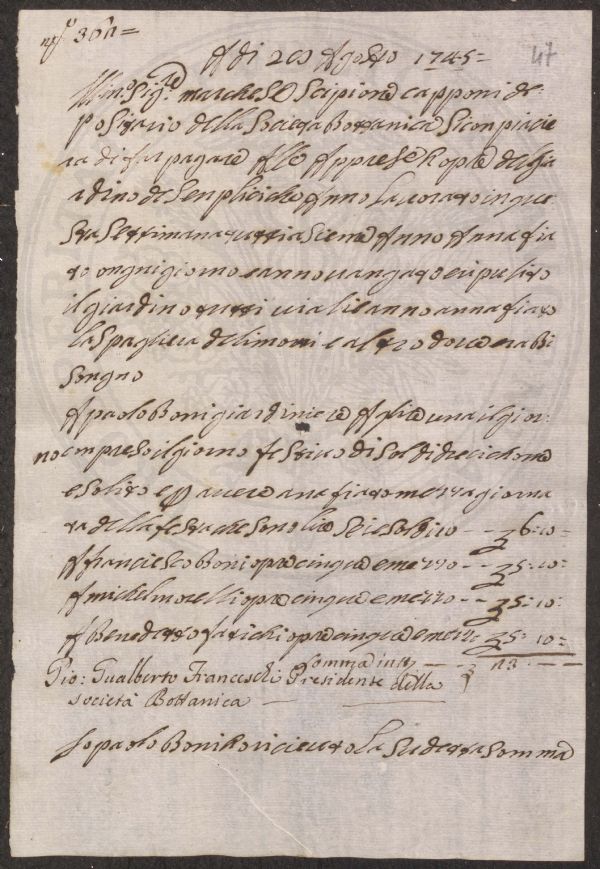 A di 20 Agosto 1745 =
47
Ill.mo Sig.re marchese Scipione capponi de
positario della Societa Bottanica Si conpiacie
ra di far pagare Alle Apprese hopre del gia
rdino de Senplici che Anno lavorato in que
sta Settimana tutti a Sieme Anno Anna fia
to ongni giorno e anno vangato e ripulito
il giardino tutti viali e anno annafiato
la Spagliera de limoni e altro dove era bi
songno
A paolo Boni giardiniere A lire una il gior
no conpreso il giorno festivo di Soldi dieci chome
e Solito e p avere anafiato mezza giorna
ta della festa che sono lire Sei e Soldi 10 - - 6: 10 =
A franciesco Boni opre cinque e mezzo - - 5: 10:
A michel morelli opre cinque e mezzo - - 5: 10:
A Benedetto fatichi opre cinque e mezzo 5: 10 =
Somma in tt - - 23 - -
Gio: Gualberto Franceschi Presidente della
Società Bottanica -
Io paolo Boni ho ricieuto La Sudetta Somma